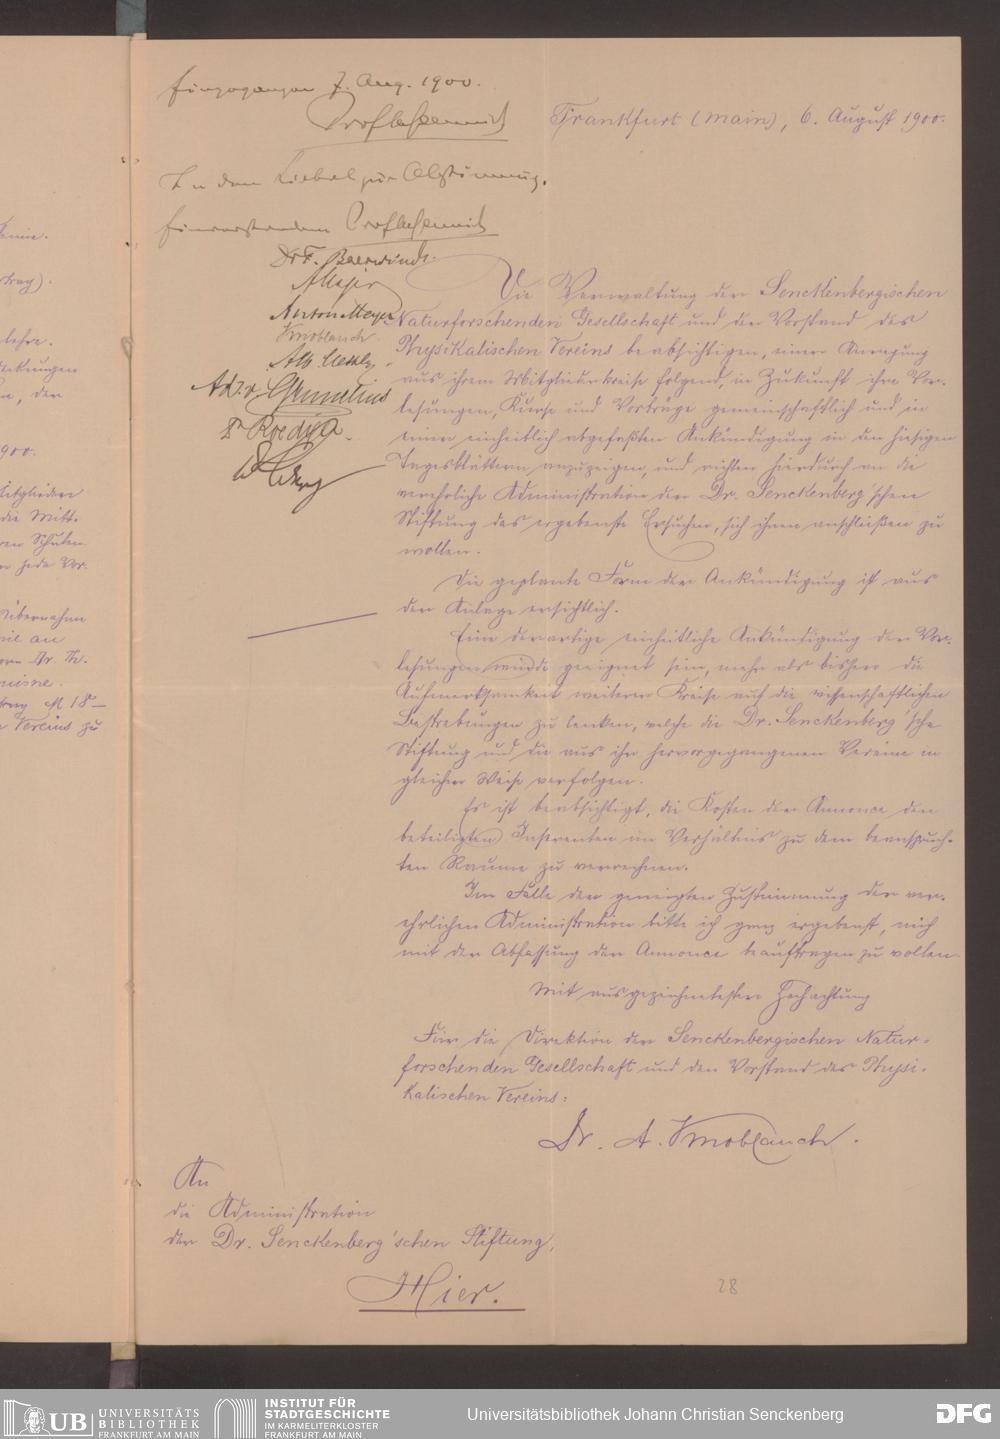 Eingegangen 7. Aug. 1900.
Frankfurt (Main), 6. August 1900.
In den Cirkel zur Abstimmung.
Einverstanden
Dr F. Baerwindt.
AMeyer
Anton Meyer
Knoblauch
Die Verwaltung der Senckenbergischen
Naturforschenden Gesellschaft und der Vorstand des
Physikalischen Vereins beabsichtigen, einer Anregung
aus ihrem Mitgliederkreise folgend, in Zukunft ihre Vor-
lesungen, Kurse und Vorträge gemeinschaftlich und in
einer einheitlich abgefaßten Ankündigung in den hiesigen
Tagesblättern anzuzeigen, und richten hierdurch an die
verehrliche Administration der Dr. Senckenberg'schen
Stiftung das ergebenste Ersuchen, sich ihnen anschließen zu
wollen.
Die geplante Form der Ankündigung ist aus
der Anlage ersichtlich.
Eine derartige einheitliche Ankündigung der Vor-
lesungen würde geeignet sein, mehr als bisher die
Aufmerksamkeit weiterer Kreise auf die wissenschaftlichen
Bestrebungen zu lenken, welche die Dr. Senckenberg'sche
Stiftung und die aus ihr hervorgegangenen Vereine in
gleicher Weise verfolgen.
Es ist beabsichtigt, die Kosten der Annonce den
beteiligten Inserenten im Verhältnis zu dem beanspruch-
ten Raume zu verrechnen.
Im Falle der geneigten Zustimmung der ver-
ehrlichen Administration bitte ich ganz ergebenst, mich
mit der Abfassung der Annonce beauftragen zu wollen.
Mit ausgezeichnetester Hochachtung
Für die Direktion der Senckenbergischen Natur-
forschenden Gesellschaft und den Vorstand des Physi-
kalischen Vereins:
Dr. A. Knoblauch.
An
die Administration
der Dr. Senckenberg'schen Stiftung,
Hier.
28
UB UNIVERSITÄTS
BIBLIOTHEK
FRANKFURT AM MAIN
INSTITUT FÜR
STADTGESCHICHTE
IM KARMELITERKLOSTER
FRANKFURT AM MAIN
Universitätsbibliothek Johann Christian Senckenberg
DFG